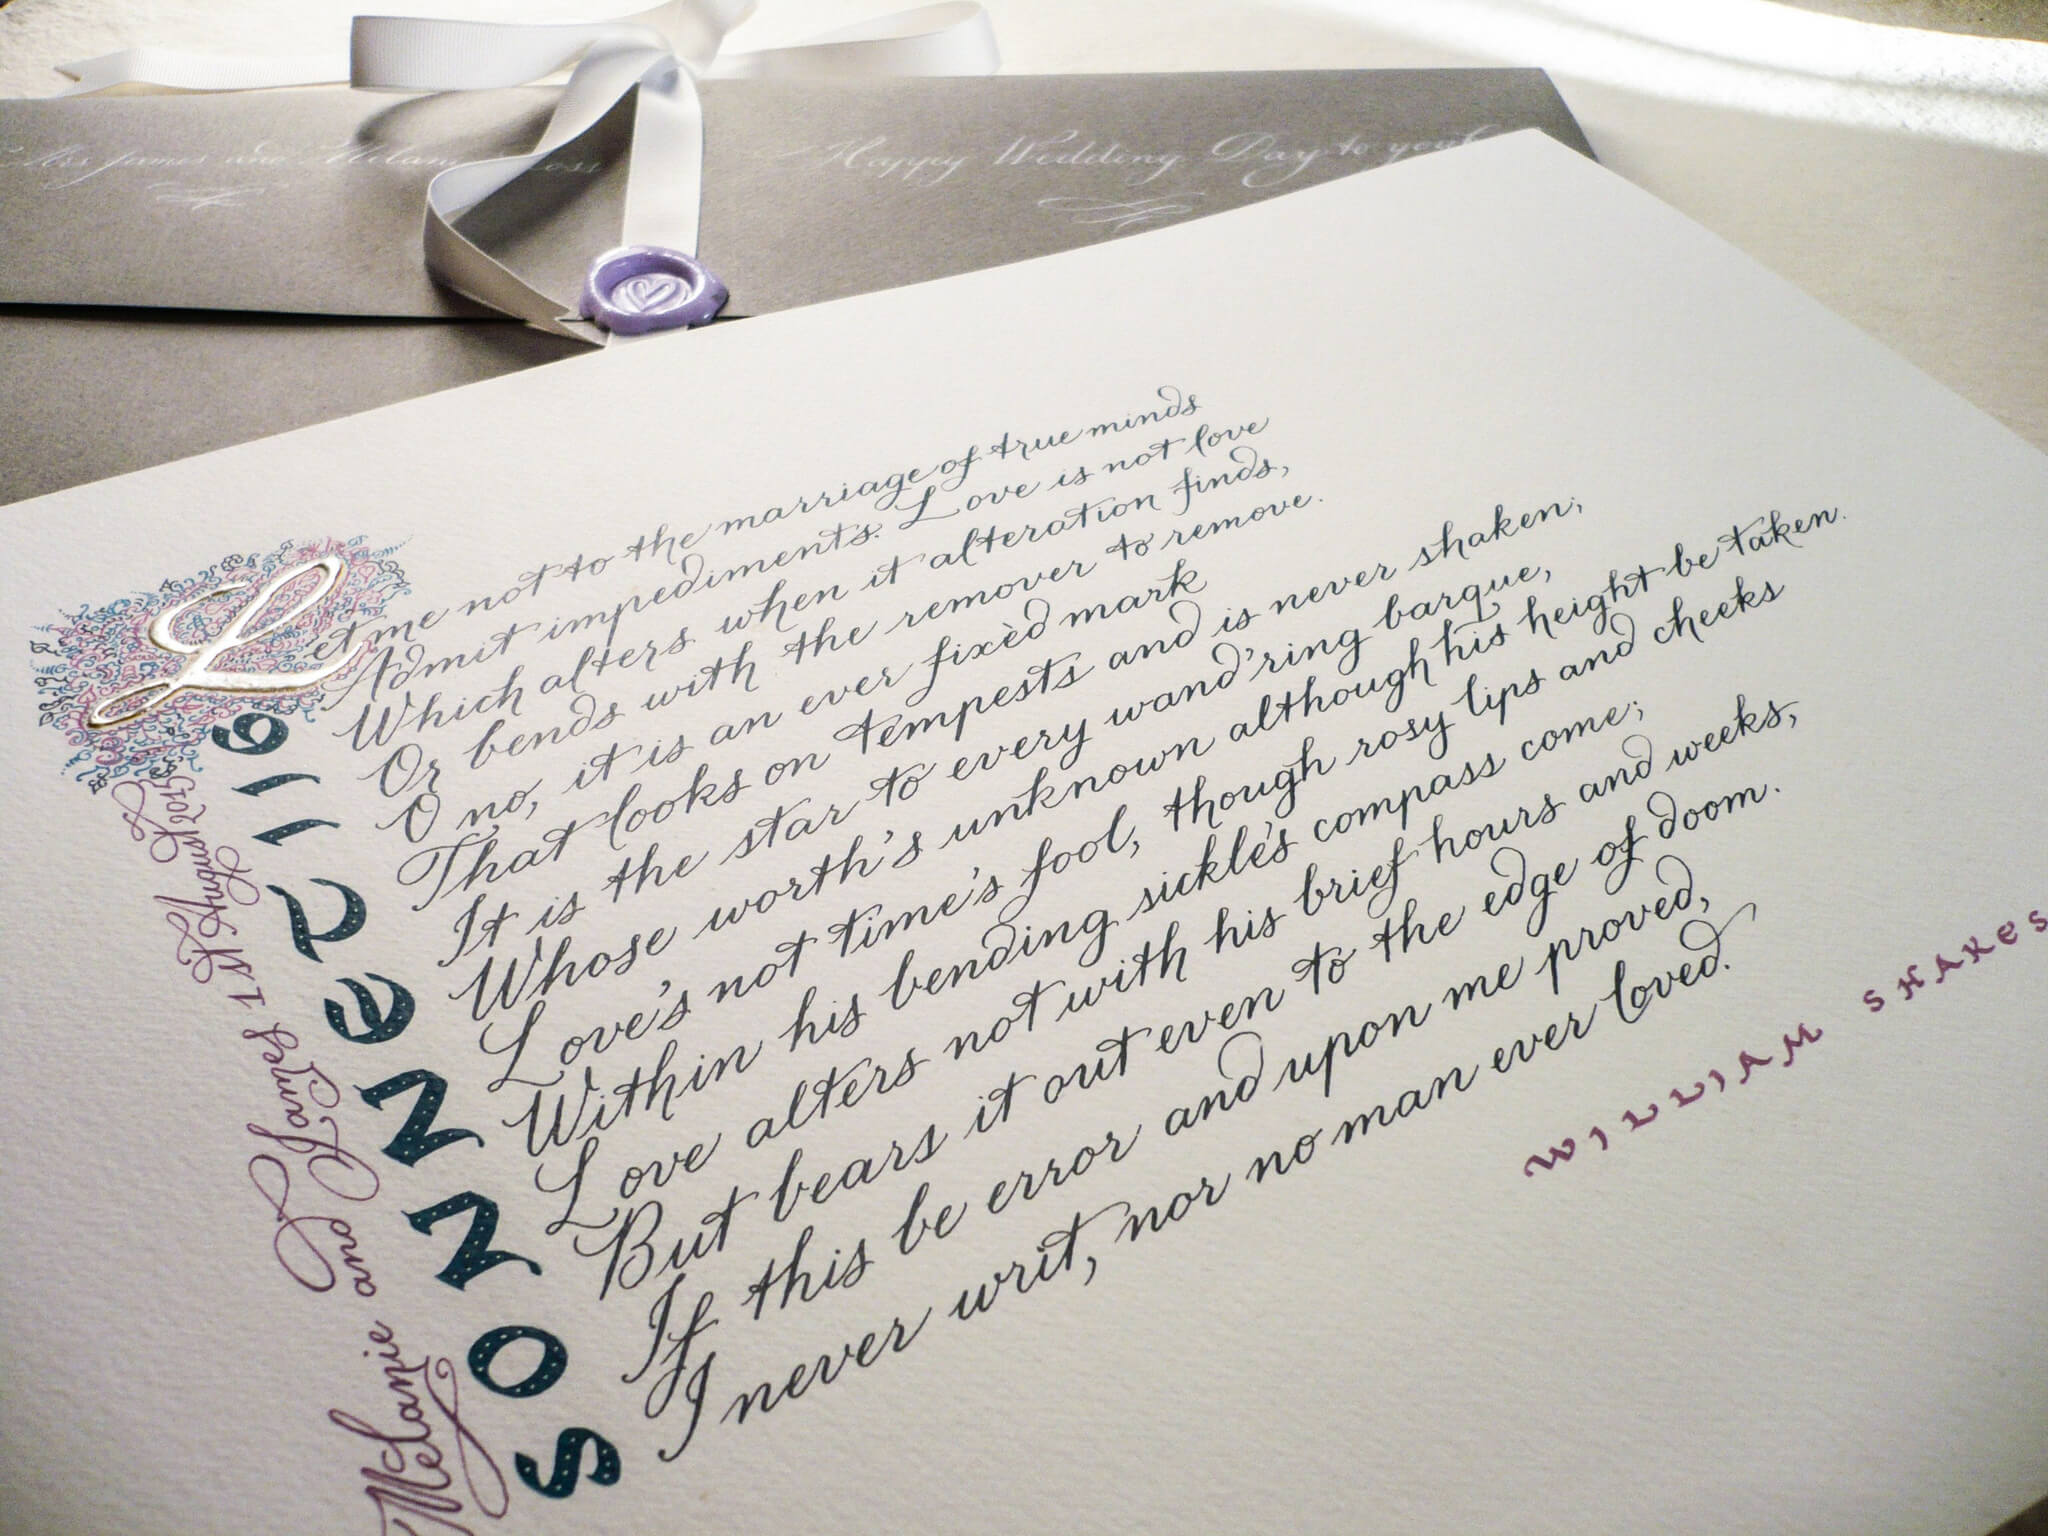 Mrs James and
Happy Wedding Day to you
Let me not to the marriage of true minds
Admit impediments. Love is not love
Which alters when it alteration finds,
Or bends with the remover to remove.
O no, it is an ever fixèd mark
That looks on tempests and is never shaken;
It is the star to every wand'ring barque,
Whose worth's unknown although his height be taken.
Love's not time's fool, though rosy lips and cheeks
Within his bending sickle's compass come;
Love alters not with his brief hours and weeks,
But bears it out even to the edge of doom.
If this be error and upon me proved,
I never writ, nor no man ever loved.
WILLIAM SHAKES
SONNET 116
Melanie and James 1st August